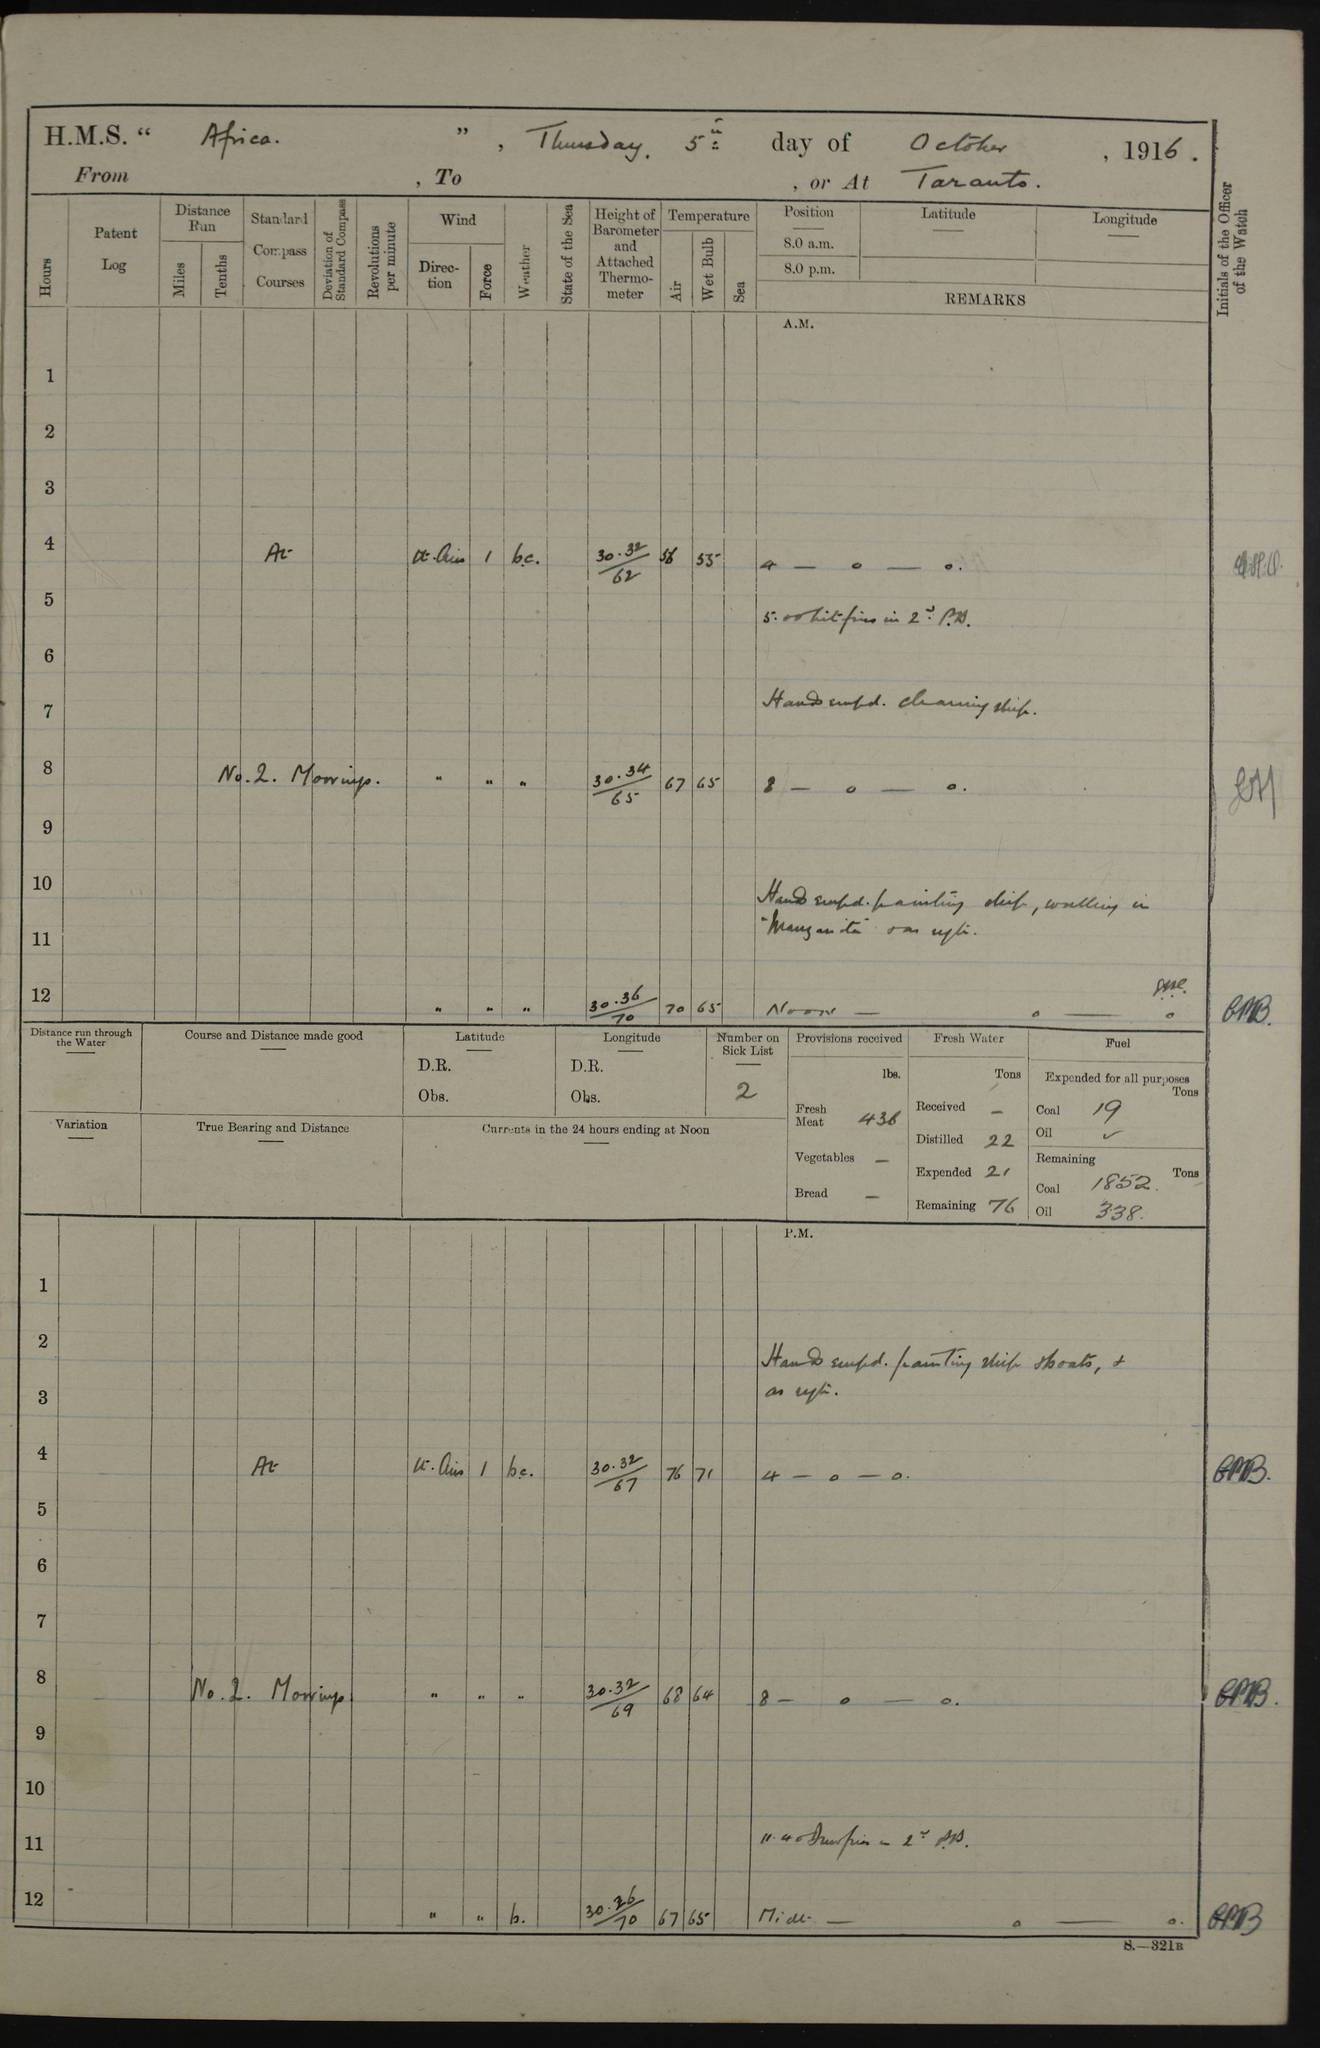 H.M.S. “ Africa. ”, Thursday. 5th day of October, 1916.
From , To , or At Taranto.
Hours
Patent Log
Distance Run
Miles
Tenths
Standard Compass Courses
Deviation of Standard Compass
Revolutions per minute
Wind
Direction
Force
Weather
State of the Sea
Height of Barometer and Attached Thermometer
Temperature
Air
Wet Bulb
Sea
Position
8.0 a.m.
8.0 p.m.
Latitude
Longitude
REMARKS
Initials of the Officer of the Watch
A.M.
1
2
3
4 At Lt. Airs 1 b.c. 30.32/62 56 55 4 — o — o.
5
5.00 Lit fires in 2nd P.D.
6
7 Hands empd. cleaning ship.
8 No. 2. Moorings. " " " 30.34/65 67 65 8 — o — o.
9
10
Hands empd. painting ship, working in
11 "Manganite" & as reqte.
12 " " " 30.36/70 70 65 Noon — o — o BMB.
Distance run through the Water
Course and Distance made good
Latitude
D.R.
Obs.
Longitude
D.R.
Obs.
Number on Sick List
2
Provisions received
lbs.
Fresh Meat 436
Vegetables —
Bread —
Fresh Water
Tons
Received —
Distilled 22
Expended 21
Remaining 76
Fuel
Expended for all purposes
Tons
Coal 19
Oil ✓
Remaining
Tons
Coal 1852.
Oil 338.
Variation
True Bearing and Distance
Currents in the 24 hours ending at Noon
P.M.
1
2
Hands empd. painting ship & boats, &
3 as reqte.
4 At Lt. Airs 1 b.c. 30.32/67 76 71 4 — o — o. BMB.
5
6
7
8 No. 2. Moorings " " " 30.32/69 68 64 8 — o — o. BMB.
9
10
11 11.40 Drew fires in 2nd P.D.
12 " " b. 30.36/70 67 65 Midt — o — o. BMB
S.—321B